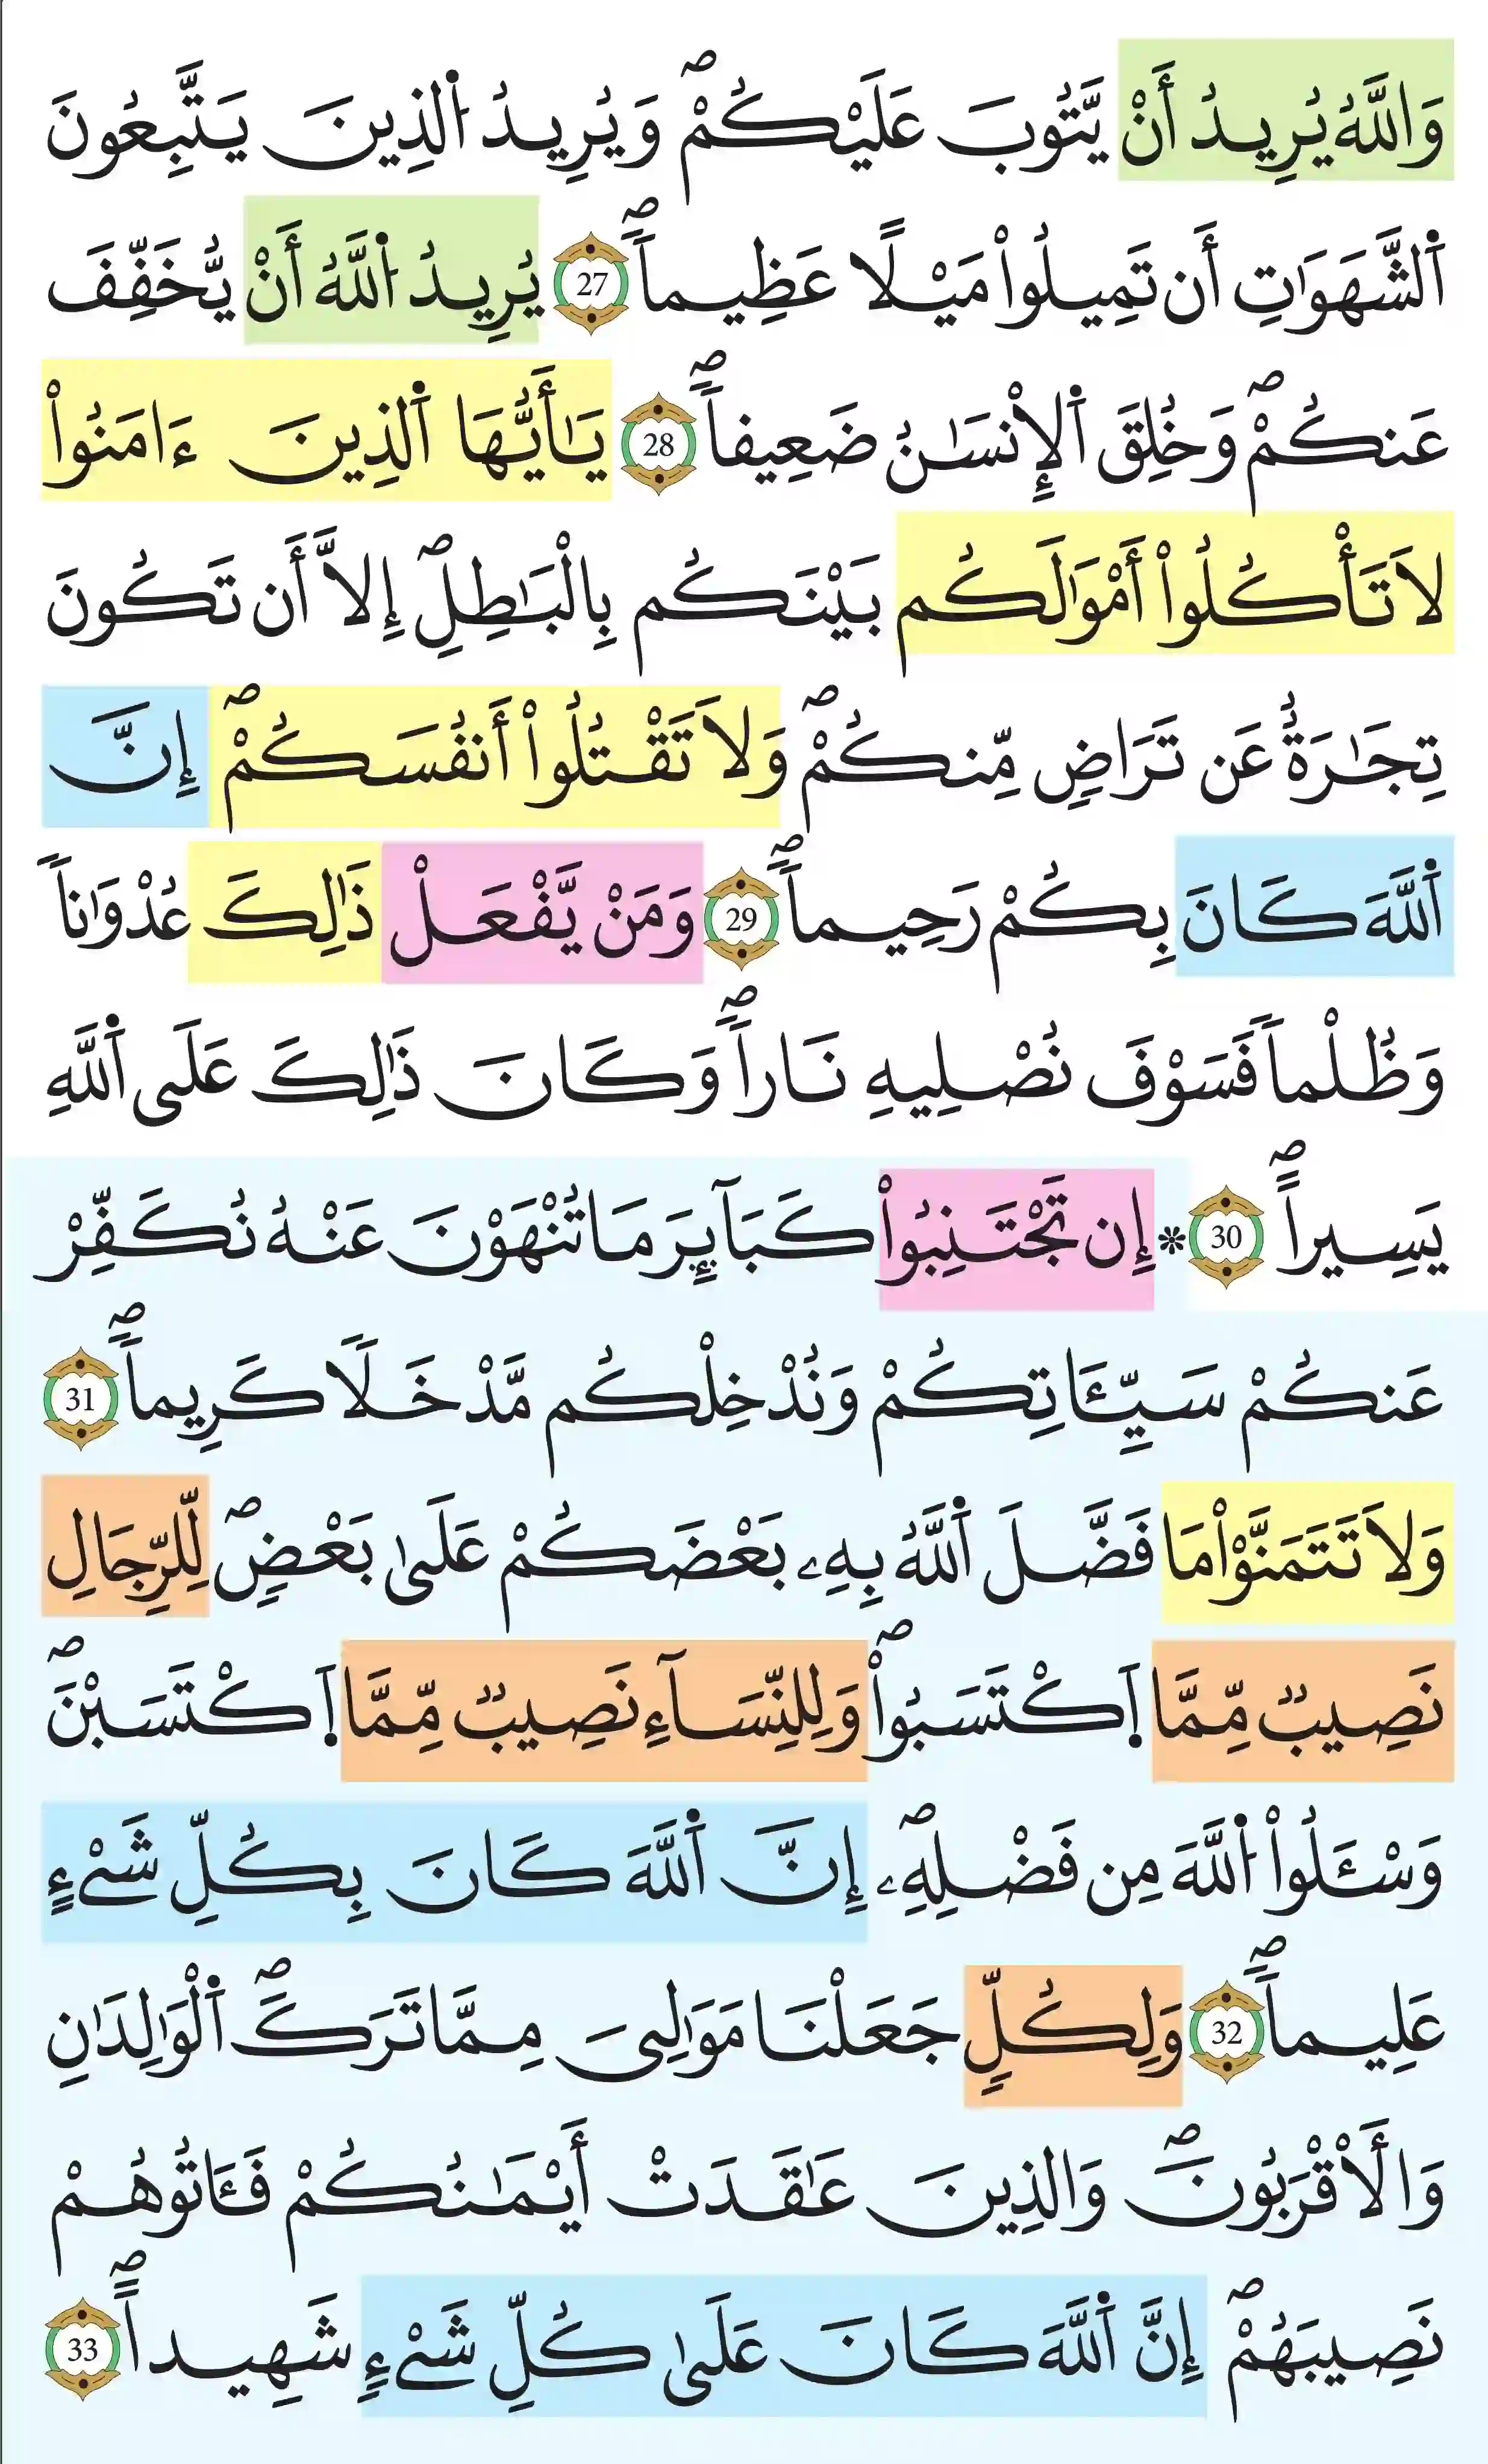 وَاللَّهُ يُرِيدُ أَنْ يَّتُوبَ عَلَيْكُمْۖ وَيُرِيدُ اُ۬لذِينَ يَتَّبِعُونَ
اَ۬لشَّهَوَٰتِ أَن تَمِيلُواْ مَيْلًا عَظِيماٗۖ 27 يُرِيدُ اُ۬للَّهُ أَنْ يُّخَفِّفَ
عَنكُمْۖ وَخُلِقَ اَ۬لِانْسَٰنُ ضَعِيفاٗۖ 28 يَٰأَيُّهَا اَ۬لذِينَ ءَامَنُواْ
لَا تَأْكُلُواْ أَمْوَٰلَكُم بَيْنَكُم بِالْبَٰطِلِۖ إِلَّا أَن تَكُونَ
تِجَٰرَةٌ عَن تَرَاضٖ مِّنكُمْۖ وَلَا تَقْتُلُواْ أَنفُسَكُمْۖ إِنَّ
اَ۬للَّهَ كَانَ بِكُمْ رَحِيماٗۖ 29 وَمَنْ يَّفْعَلْ ذَٰلِكَ عُدْوَٰناٗ
وَظُلْماٗ فَسَوْفَ نُصْلِيهِ نَاراٗۖ وَكَانَ ذَٰلِكَ عَلَى اَ۬للَّهِ
يَسِيراًۖ 30 * إِن تَجْتَنِبُواْ كَبَآئِرَ مَا تُنْهَوْنَ عَنْهُ نُكَفِّرْ
عَنكُمْ سَيِّـَٔاتِكُمْ وَنُدْخِلْكُم مَّدْخَلٗا كَرِيماٗۖ 31
وَلَا تَتَمَنَّوْاْ مَا فَضَّلَ اَ۬للَّهُ بِهِۦ بَعْضَكُمْ عَلَىٰ بَعْضٖۖ لِّلرِّجَالِ
نَصِيبٞ مِّمَّا اَ۪كْتَسَبُواْۖ وَلِلنِّسَآءِ نَصِيبٞ مِّمَّا اَ۪كْتَسَبْنَۖ
وَسْـَٔلُواْ اُ۬للَّهَ مِن فَضْلِهِۦۖ إِنَّ اَ۬للَّهَ كَانَ بِكُلِّ شَےْءٍ
عَلِيماٗۖ 32 وَلِكُلّٖ جَعَلْنَا مَوَٰلِيَ مِمَّا تَرَكَۖ اَ۬لْوَٰلِدَٰنِ
وَالْأَقْرَبُونَۖ وَالذِينَ عَٰقَدَتْ أَيْمَٰنُكُمْ فَـَٔاتُوهُمْ
نَصِيبَهُمْۖ إِنَّ اَ۬للَّهَ كَانَ عَلَىٰ كُلِّ شَےْءٖ شَهِيداًۖ 33